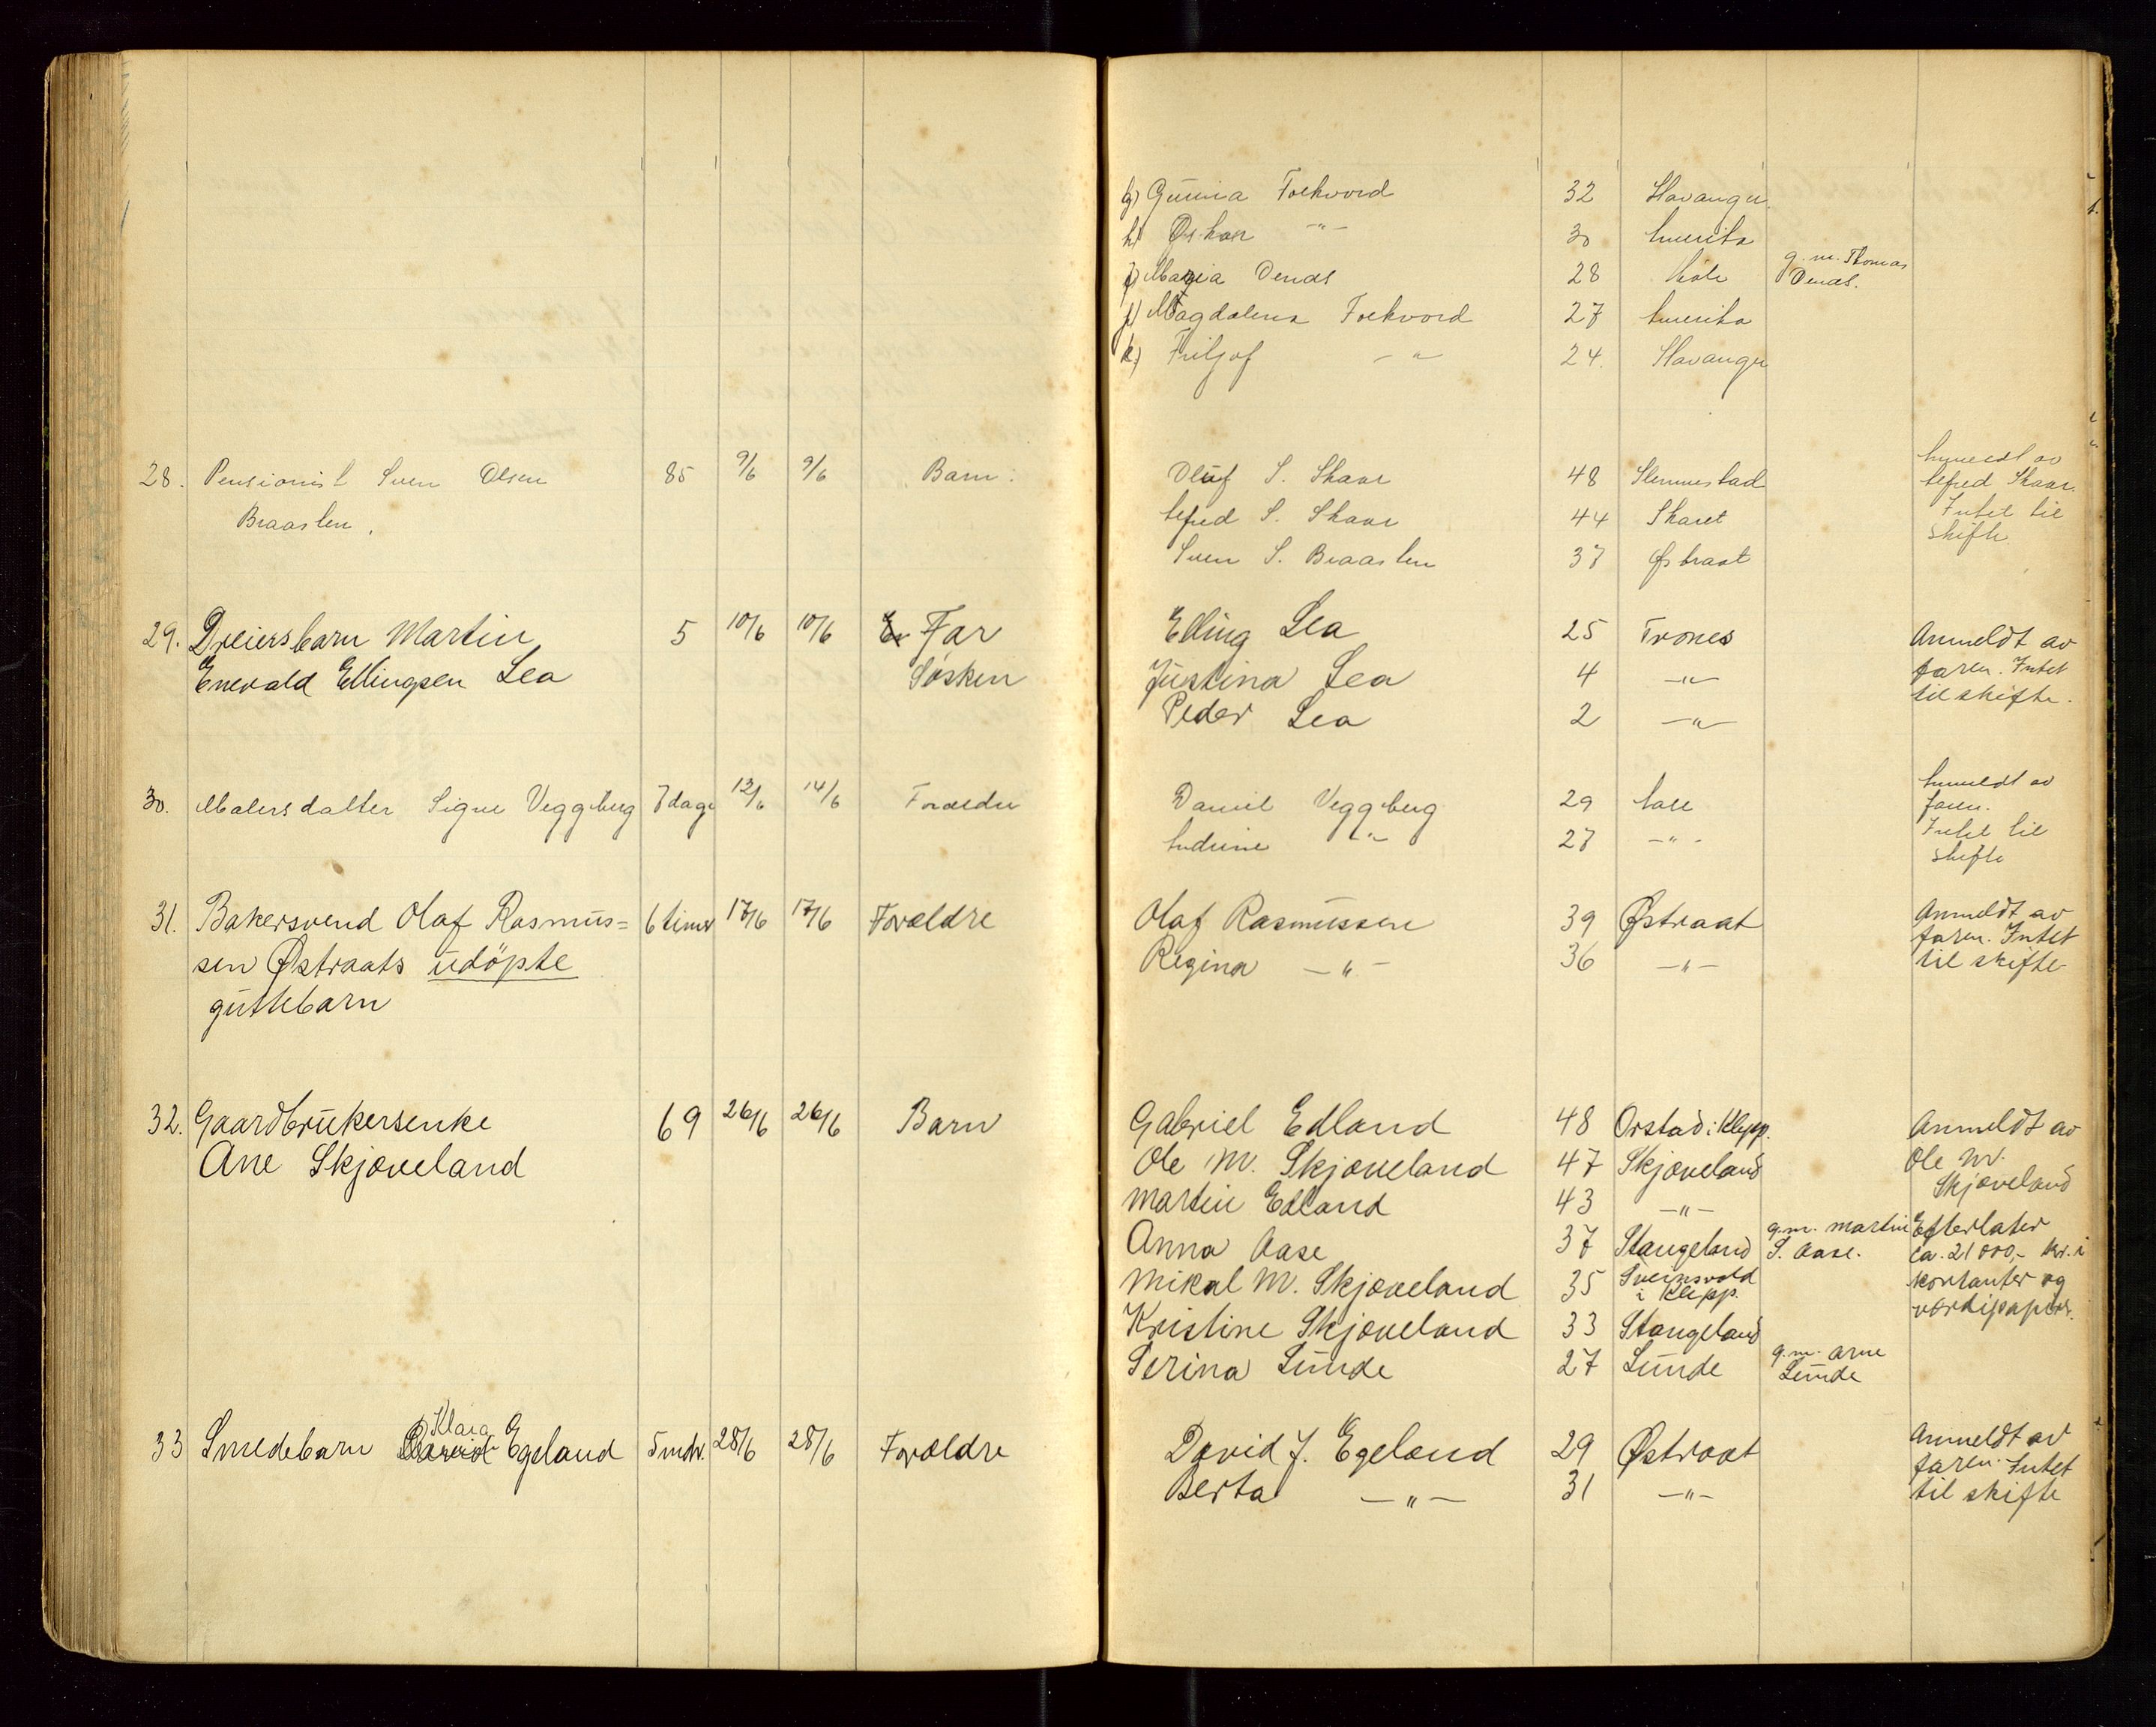 g) Gunna Folkvord 32 Stavanger.
h) Oskar -"- 30 Amerika
i) Maria Denas 28 Aale g. m. Thomas Denas.
j) Magdalena Folkvord 27 Amerika
k) Fritjof -"- 24. Stavanger
28. Pensionist Sven Olsen 85 9/6 9/6 Barn. Oluf S. Skaar 48 Slemmestad Anmeldt av
Braasten. Alfred S. Skaar 44 Skaret Alfred Skaar.
Sven S. Braasten 37 Østraat Intet til
skifte
29. Dreiersbarn Martin 5 10/6 10/6 Far Elling Lea 25 Trones Anmeldt av
Enevald Ellingsen Lea Søsken Justina Lea 4 -"- faren. Intet
Peder Lea 2 -"- til skifte.
30. Malersdatter Signe Veggeberg 7 dage 12/6 14/6 Forældre Daniel Veggeberg 29 Aase Anmeldt av
Andrine -"- 27 -"- faren.
Intet til
skifte
31. Bakersvend Olaf Rasmus= 6 timer 17/6 17/6 Forældre Olaf Rasmussen 39 Østraat Anmeldt av
sen Østraats udöpte Regina -"- 36 -"- faren. Intet
guttebarn til skifte
32. Gaardbrukersenke 69 26/6 26/6 Barn Gabriel Edland 48 Orstad i Klepp. Anmeldt av
Ane Skjæveland Ole M. Skjæveland 47 Skjæveland Ole M.
Martin Edland 43 -"- Skjæveland
Anna Aase 37 Stangeland g.m. Martin S. Aase. Efterlater
Mikal M. Skjæveland 35 i Klepp. ca. 21000,- kr. i
Kristine Skjæveland 33 Stangeland kontanter og
Serina Lunde 27 Lunde g.m. Arne Lunde værdipapirer.
33 Smedebarn Klara Egeland 5 mdr. 28/6 28/6 Forældre David J. Egeland 29 Østraat Anmeldt av
Berta -"- 31 -"- faren. Intet
til skifte